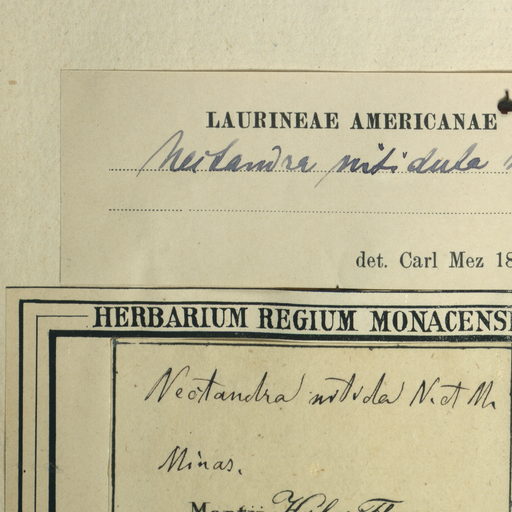 LAURINEAE AMERICANAE
Nectandra nitidula
det. Carl Mez 18
HERBARIUM REGIUM MONACENS
Nectandra nitida N. et M.
Minas.